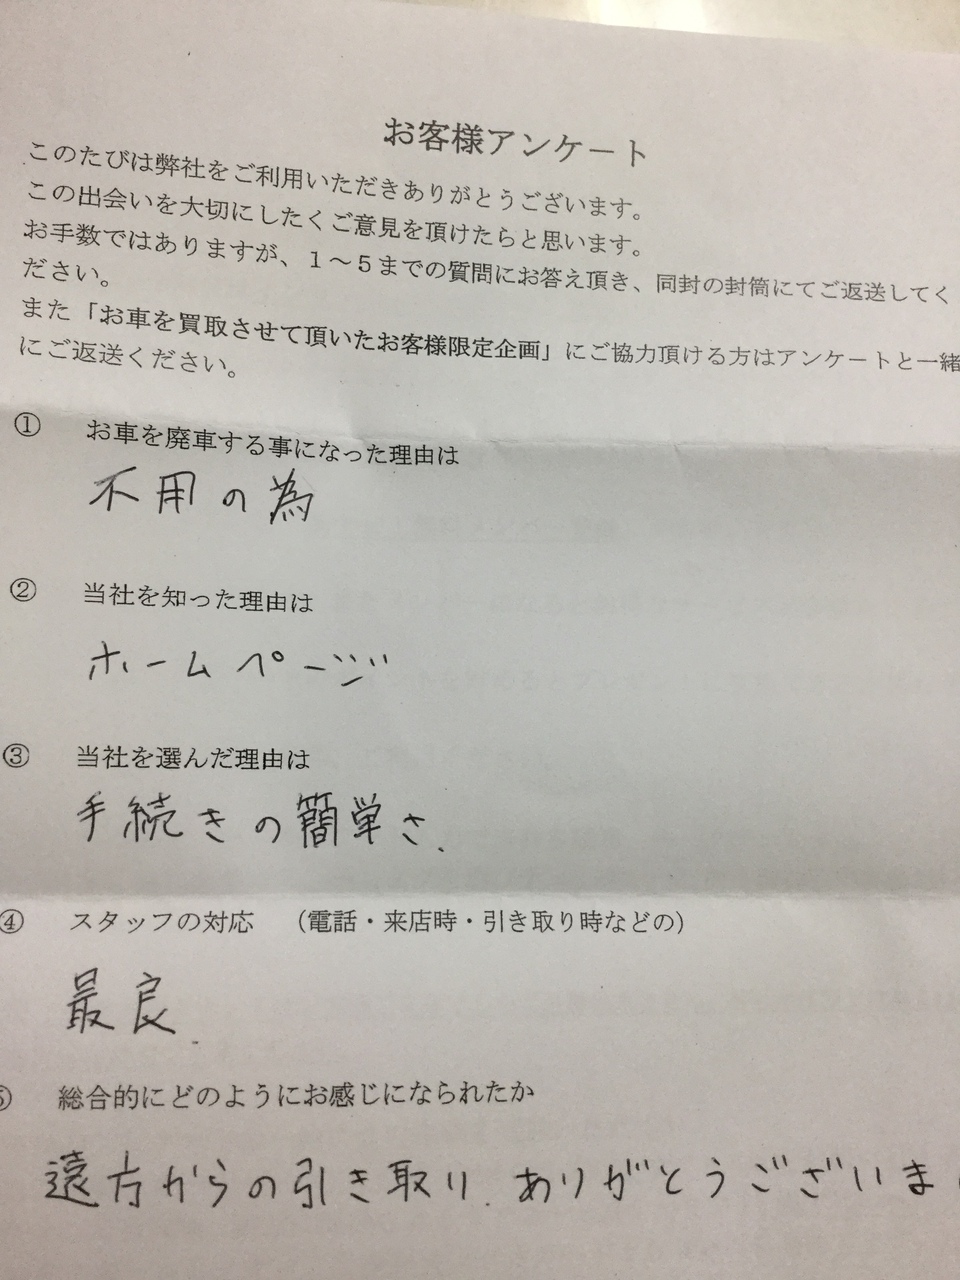 お客様アンケート
このたびは弊社をご利用いただきありがとうございます。
この出会いを大切にしたくご意見を頂けたらと思います。
お手数ではありますが、１～５までの質問にお答え頂き、同封の封筒にてご返送してく
ださい。
また「お車を買取させて頂いたお客様限定企画」にご協力頂ける方はアンケートと一緒
にご返送ください。
① お車を廃車する事になった理由は
不用の為
② 当社を知った理由は
ホームページ
③ 当社を選んだ理由は
手続きの簡単さ.
④ スタッフの対応 （電話・来店時・引き取り時などの）
最良.
⑤ 総合的にどのようにお感じになられたか
遠方からの引き取り.ありがとうございま